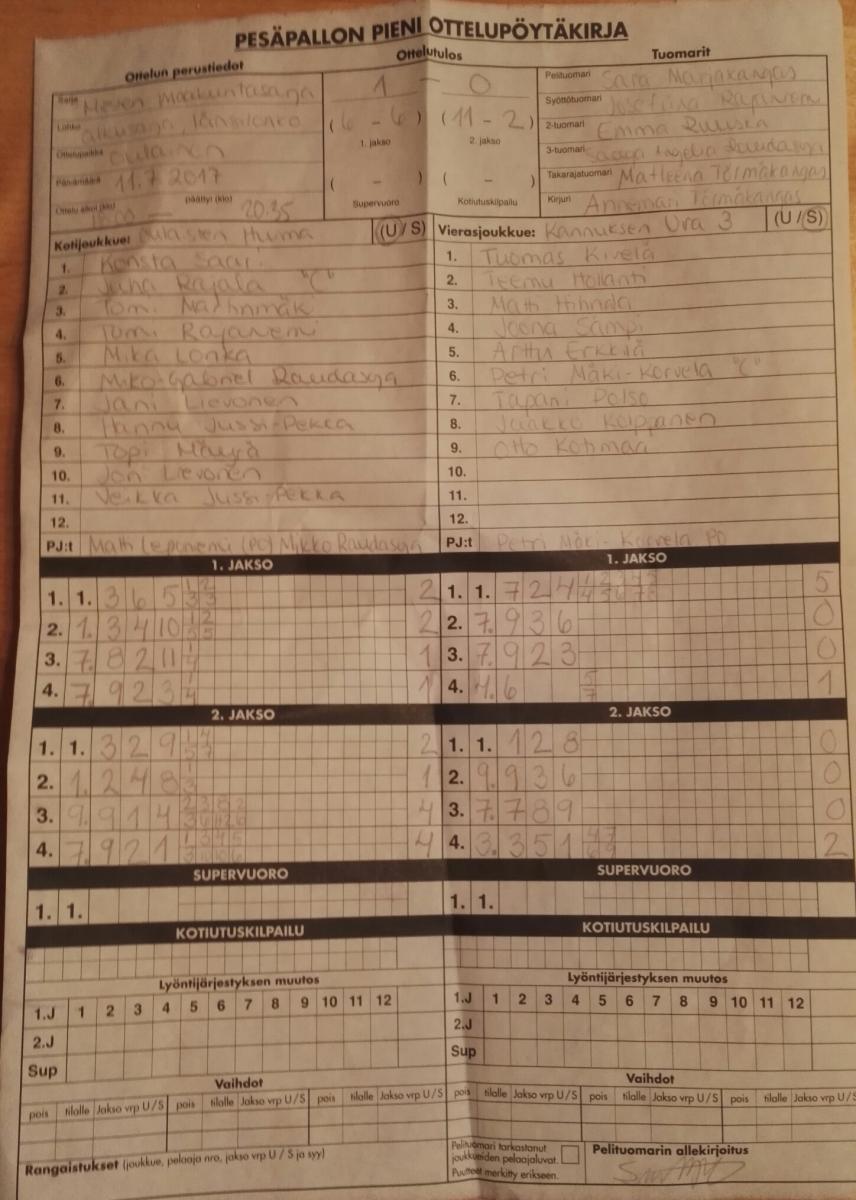 PESÄPALLON PIENI OTTELUPÖYTÄKIRJA
Ottelun perustiedot
Ottelutulos
Tuomarit
Sarja Miesten Maakuntasarja
Lohko alkusarja, länsilohko
Ottelupaikka Oulainen
Päivämäärä 11.7.2017
Ottelu alkoi (klo) — päättyi (klo) 20.35
1 – 0
(6 – 6) (11 – 2)
1. jakso 2. jakso
( – ) ( – )
Supervuoro Kotiutuskilpailu
Pelituomari Sara Marjakangas
Syöttötuomari Josefiina Rajaniemi
2-tuomari Emma
3-tuomari Raudasoja
Takarajatuomari Matleena Törmäkangas
Kirjuri Annemari Törmäkangas
Kotijoukkue: Oulaisten Huima (U/S)
1. Konsta Saari
2. Juha Rajala "C"
3. Tomi Matinmäki
4. Tomi Rajaniemi
5. Mika Lonka
6. Miko-Gabriel Raudasoja
7. Jani Lievonen
8. Hannu Jussi-Pekka
9. Topi
10. Joni Lievonen
11. Veikka Jussi-Pekka
12.
PJ:t (PJ) Mikko Raudasoja
Vierasjoukkue: Kannuksen Ura 3 (U/S)
1. Tuomas Kivelä
2. Teemu Hollanti
3. Matti Hihnala
4. Joona Sämpi
5. Arttu Erkkilä
6. Petri Mäki-Korvela "C"
7. Tapani Polso
8. Jaakko
9. Otto Kotimaa
10.
11.
12.
PJ:t Petri Mäki-Korvela PJ
1. JAKSO
1. 1. 3 6 5 2
2. 1. 3 4 10 2
3. 7. 8 2 11 1
4. 7. 9 2 3 1
1. JAKSO
1. 1. 7 2 4 5
2. 7. 9 3 6 0
3. 7. 9 2 3 0
4. 4. 6 5 7 1
2. JAKSO
1. 1. 3 2 9 2
2. 1. 2 4 8 1
3. 9. 9 1 4 4
4. 7. 9 2 1 4
2. JAKSO
1. 1. 1 2 8 0
2. 9. 9 3 6 0
3. 7. 7 8 9 0
4. 3. 3 5 1 2
SUPERVUORO
1. 1.
SUPERVUORO
1. 1.
KOTIUTUSKILPAILU
KOTIUTUSKILPAILU
Lyöntijärjestyksen muutos
1.J 1 2 3 4 5 6 7 8 9 10 11 12
2.J
Sup
Lyöntijärjestyksen muutos
1.J 1 2 3 4 5 6 7 8 9 10 11 12
2.J
Sup
Vaihdot
pois tilalle Jakso vrp U/S pois tilalle Jakso vrp U/S pois tilalle Jakso vrp U/S
Vaihdot
pois tilalle Jakso vrp U/S pois tilalle Jakso vrp U/S pois tilalle Jakso vrp U/S
Rangaistukset (joukkue, pelaaja nro, jakso vrp U / S ja syy)
Pelituomari tarkastanut
joukkueiden pelaajaluvat.
Puutteet merkitty erikseen.
Pelituomarin allekirjoitus